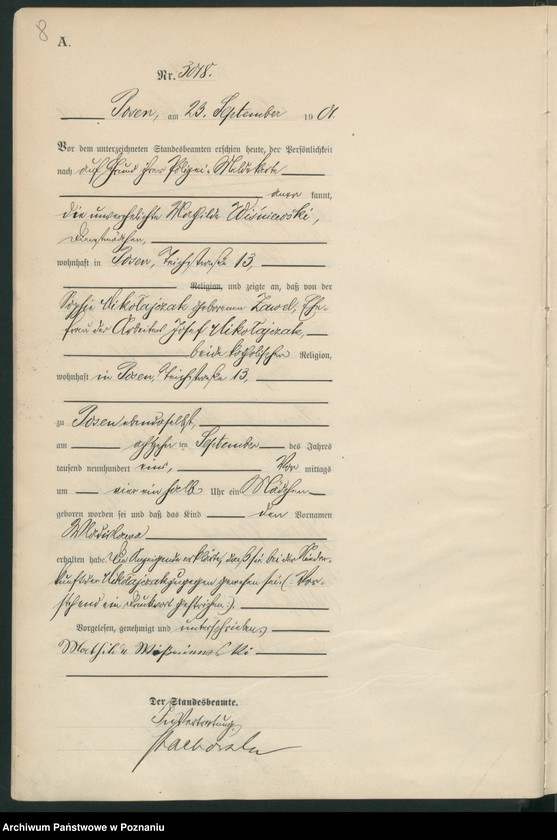 8
A.
Nr. 3018.
Posen, am 23. September 1901.
Vor dem unterzeichneten Standesbeamten erschien heute, der Persönlichkeit
nach auf Grund ihrer Polizei-Meldekarte
aner kannt,
die unverehelichte Mathilde Wiśniewski,
Dienstmädchen,
wohnhaft in Posen, Teichstraße 13,
Religion, und zeigte an, daß von der
Sophie Mikołajczak geborenen Zawol, Ehe-
frau des Arbeiters Josef Mikołajczak,
beide katholischer Religion,
wohnhaft in Posen, Teichstraße 13,
zu Posen ebendaselbst,
am achtzehn ten September des Jahres
tausend neunhundert eins, Vor mittags
um vier ein halb Uhr ein Mädchen
geboren worden sei und daß das Kind den Vornamen
Wladislawa
erhalten habe. Die Anzeigende erklärte, daß sie bei der Nieder-
kunft der Mikołajczak zugegen gewesen sei. (Vor-
stehend ein Druckwort gestrichen.)
Vorgelesen, genehmigt und unterschrieben
Mathilde
Der Standesbeamte.
In Vertretung
Archiwum Państwowe w Poznaniu